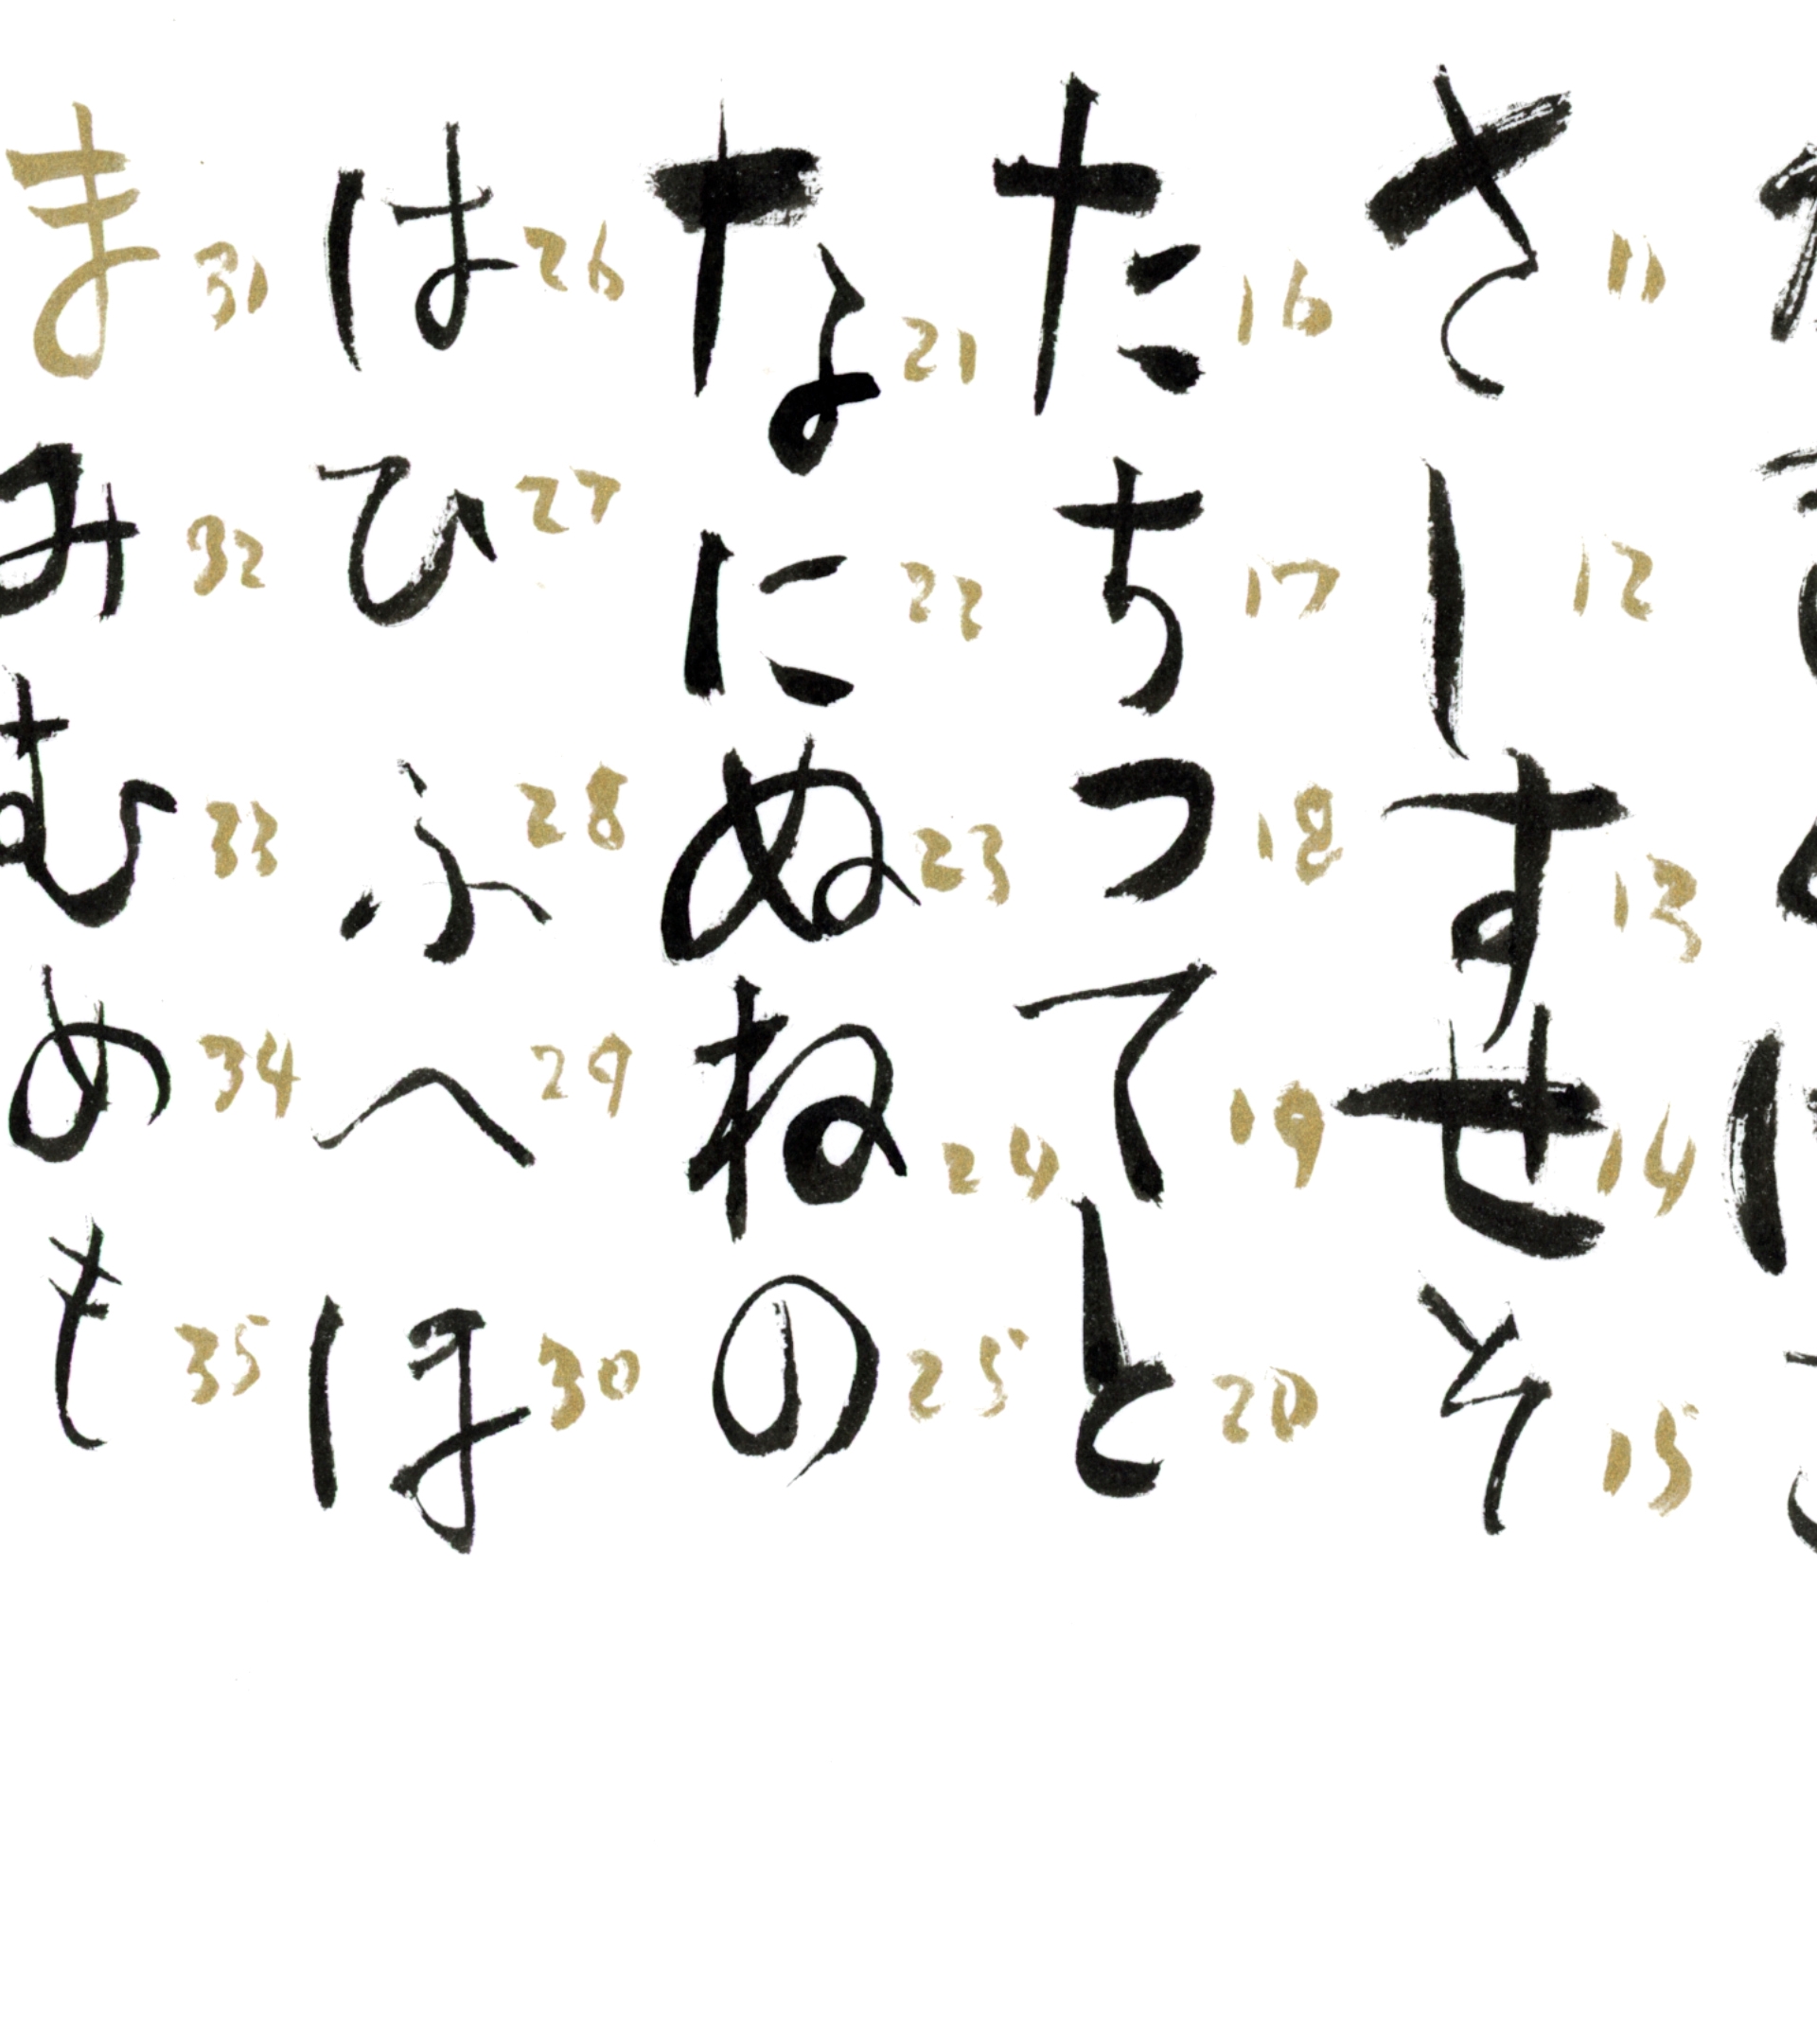 さ 11
し 12
す 13
せ 14
そ 15
た 16
ち 17
つ 18
て 19
と 20
な 21
に 22
ぬ 23
ね 24
の 25
は 26
ひ 27
ふ 28
へ 29
ほ 30
ま 31
み 32
む 33
め 34
も 35